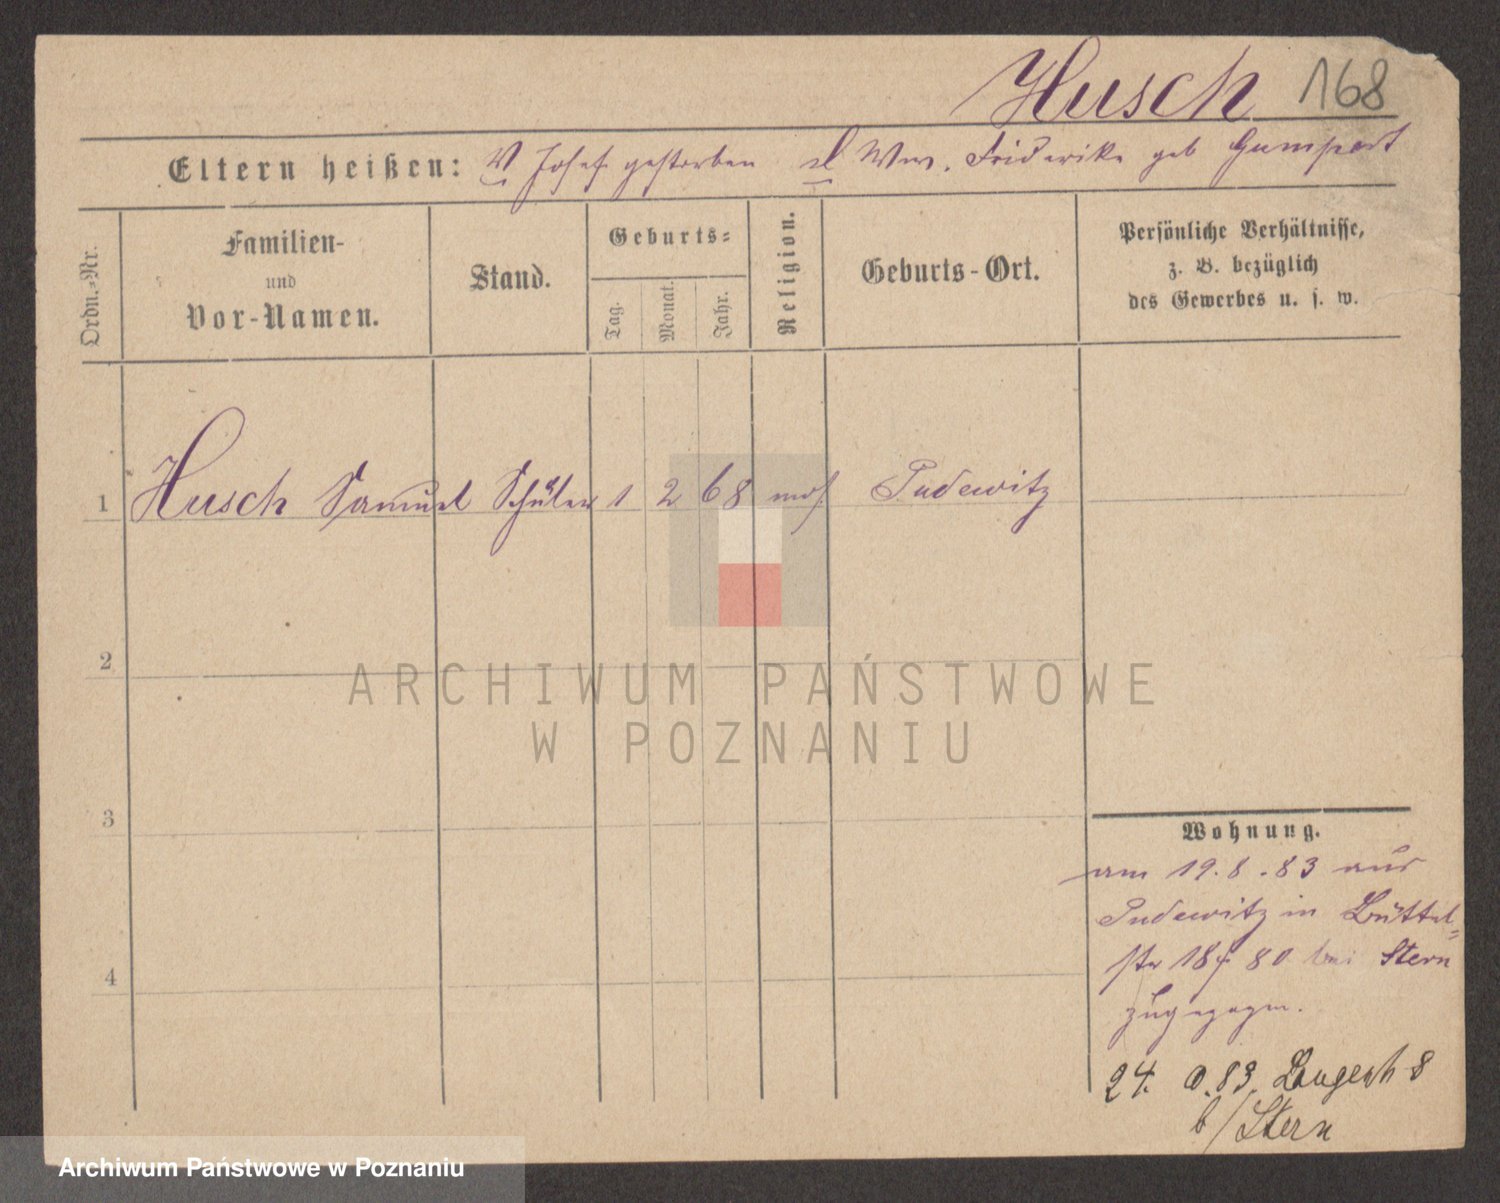 Husch 168
Eltern heißen: V Josef gestorben M Wwe. Friderike geb Gumpert
Ordn.-Nr.
Familien-
und
Vor-Namen.
Stand.
Geburts-
Tag.
Monat.
Jahr.
Religion.
Geburts-Ort.
Persönliche Verhältnisse,
z. B. bezüglich
des Gewerbes u. s. w.
1 Husch Samuel Schüler 1 2 68 mos. Pudewitz
2
3
4
ARCHIWUM PAŃSTWOWE
W POZNANIU
Wohnung.
am 19.8.83 aus
Pudewitz in Büttel=
str 18 bei Stern
zugezogen.
24. 83. 8
b/Stern
Archiwum Państwowe w Poznaniu